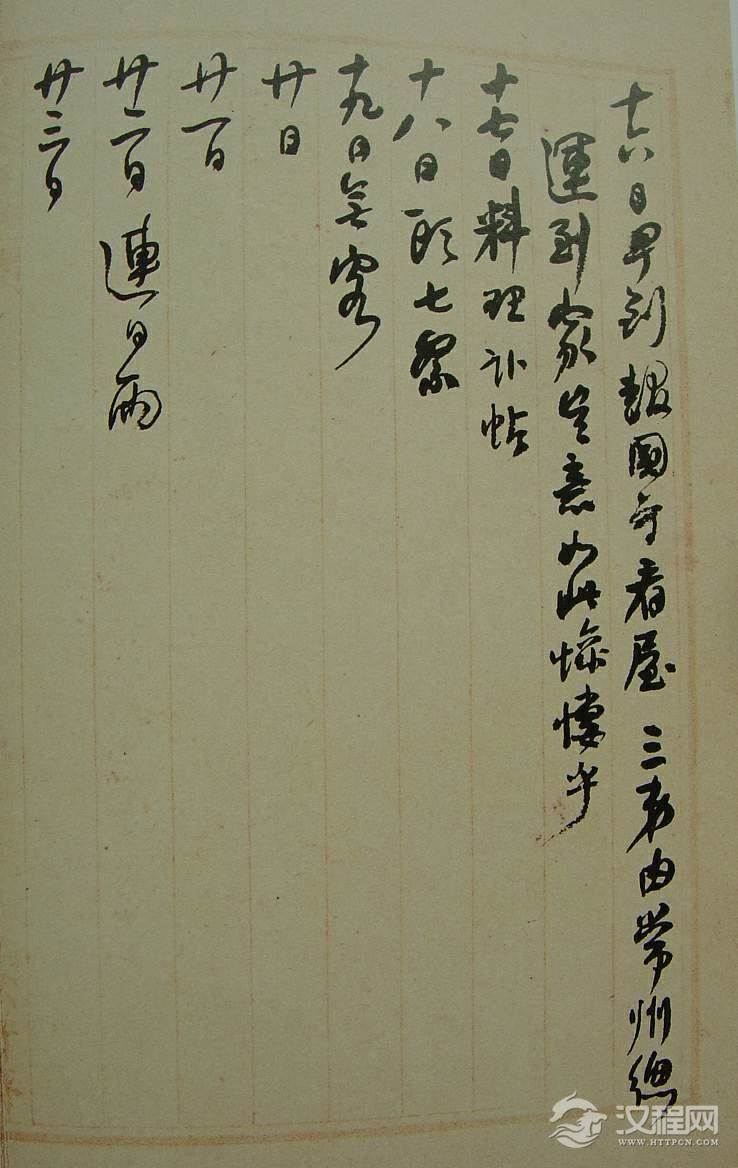 十六日早到報國寺看屋 三弟由常州總
運到家生意如此慘悽乎
十七日料理訃帖
十八日頭七祭
十九日無客
廿日
廿一日
廿二日 連日雨
廿三日
汉程网
WWW.HTTPCN.COM